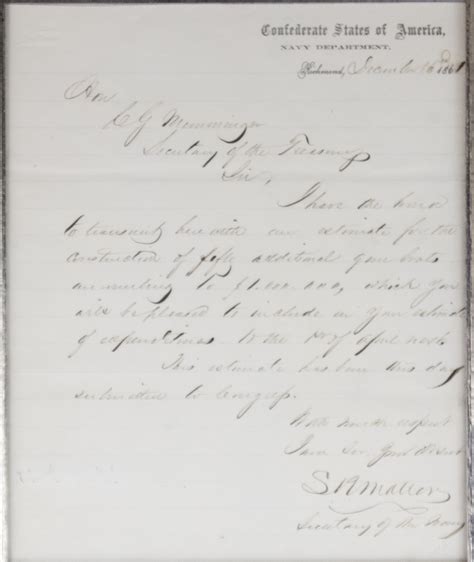 Confederate States of America,
NAVY DEPARTMENT,
Richmond, December 1861
Hon.
C G Memminger
Secretary of the Treasury
Sir,
I have the honor
to transmit herewith an estimate for the
construction of fifty additional gun boats
amounting to $1.000.000, which you
will be pleased to include in your estimate
of expenditures to the 1st of April next.
This estimate has been this day
submitted to Congress.
With much respect
I am Your Obt Servt
S R Mallory
Secretary of the Navy